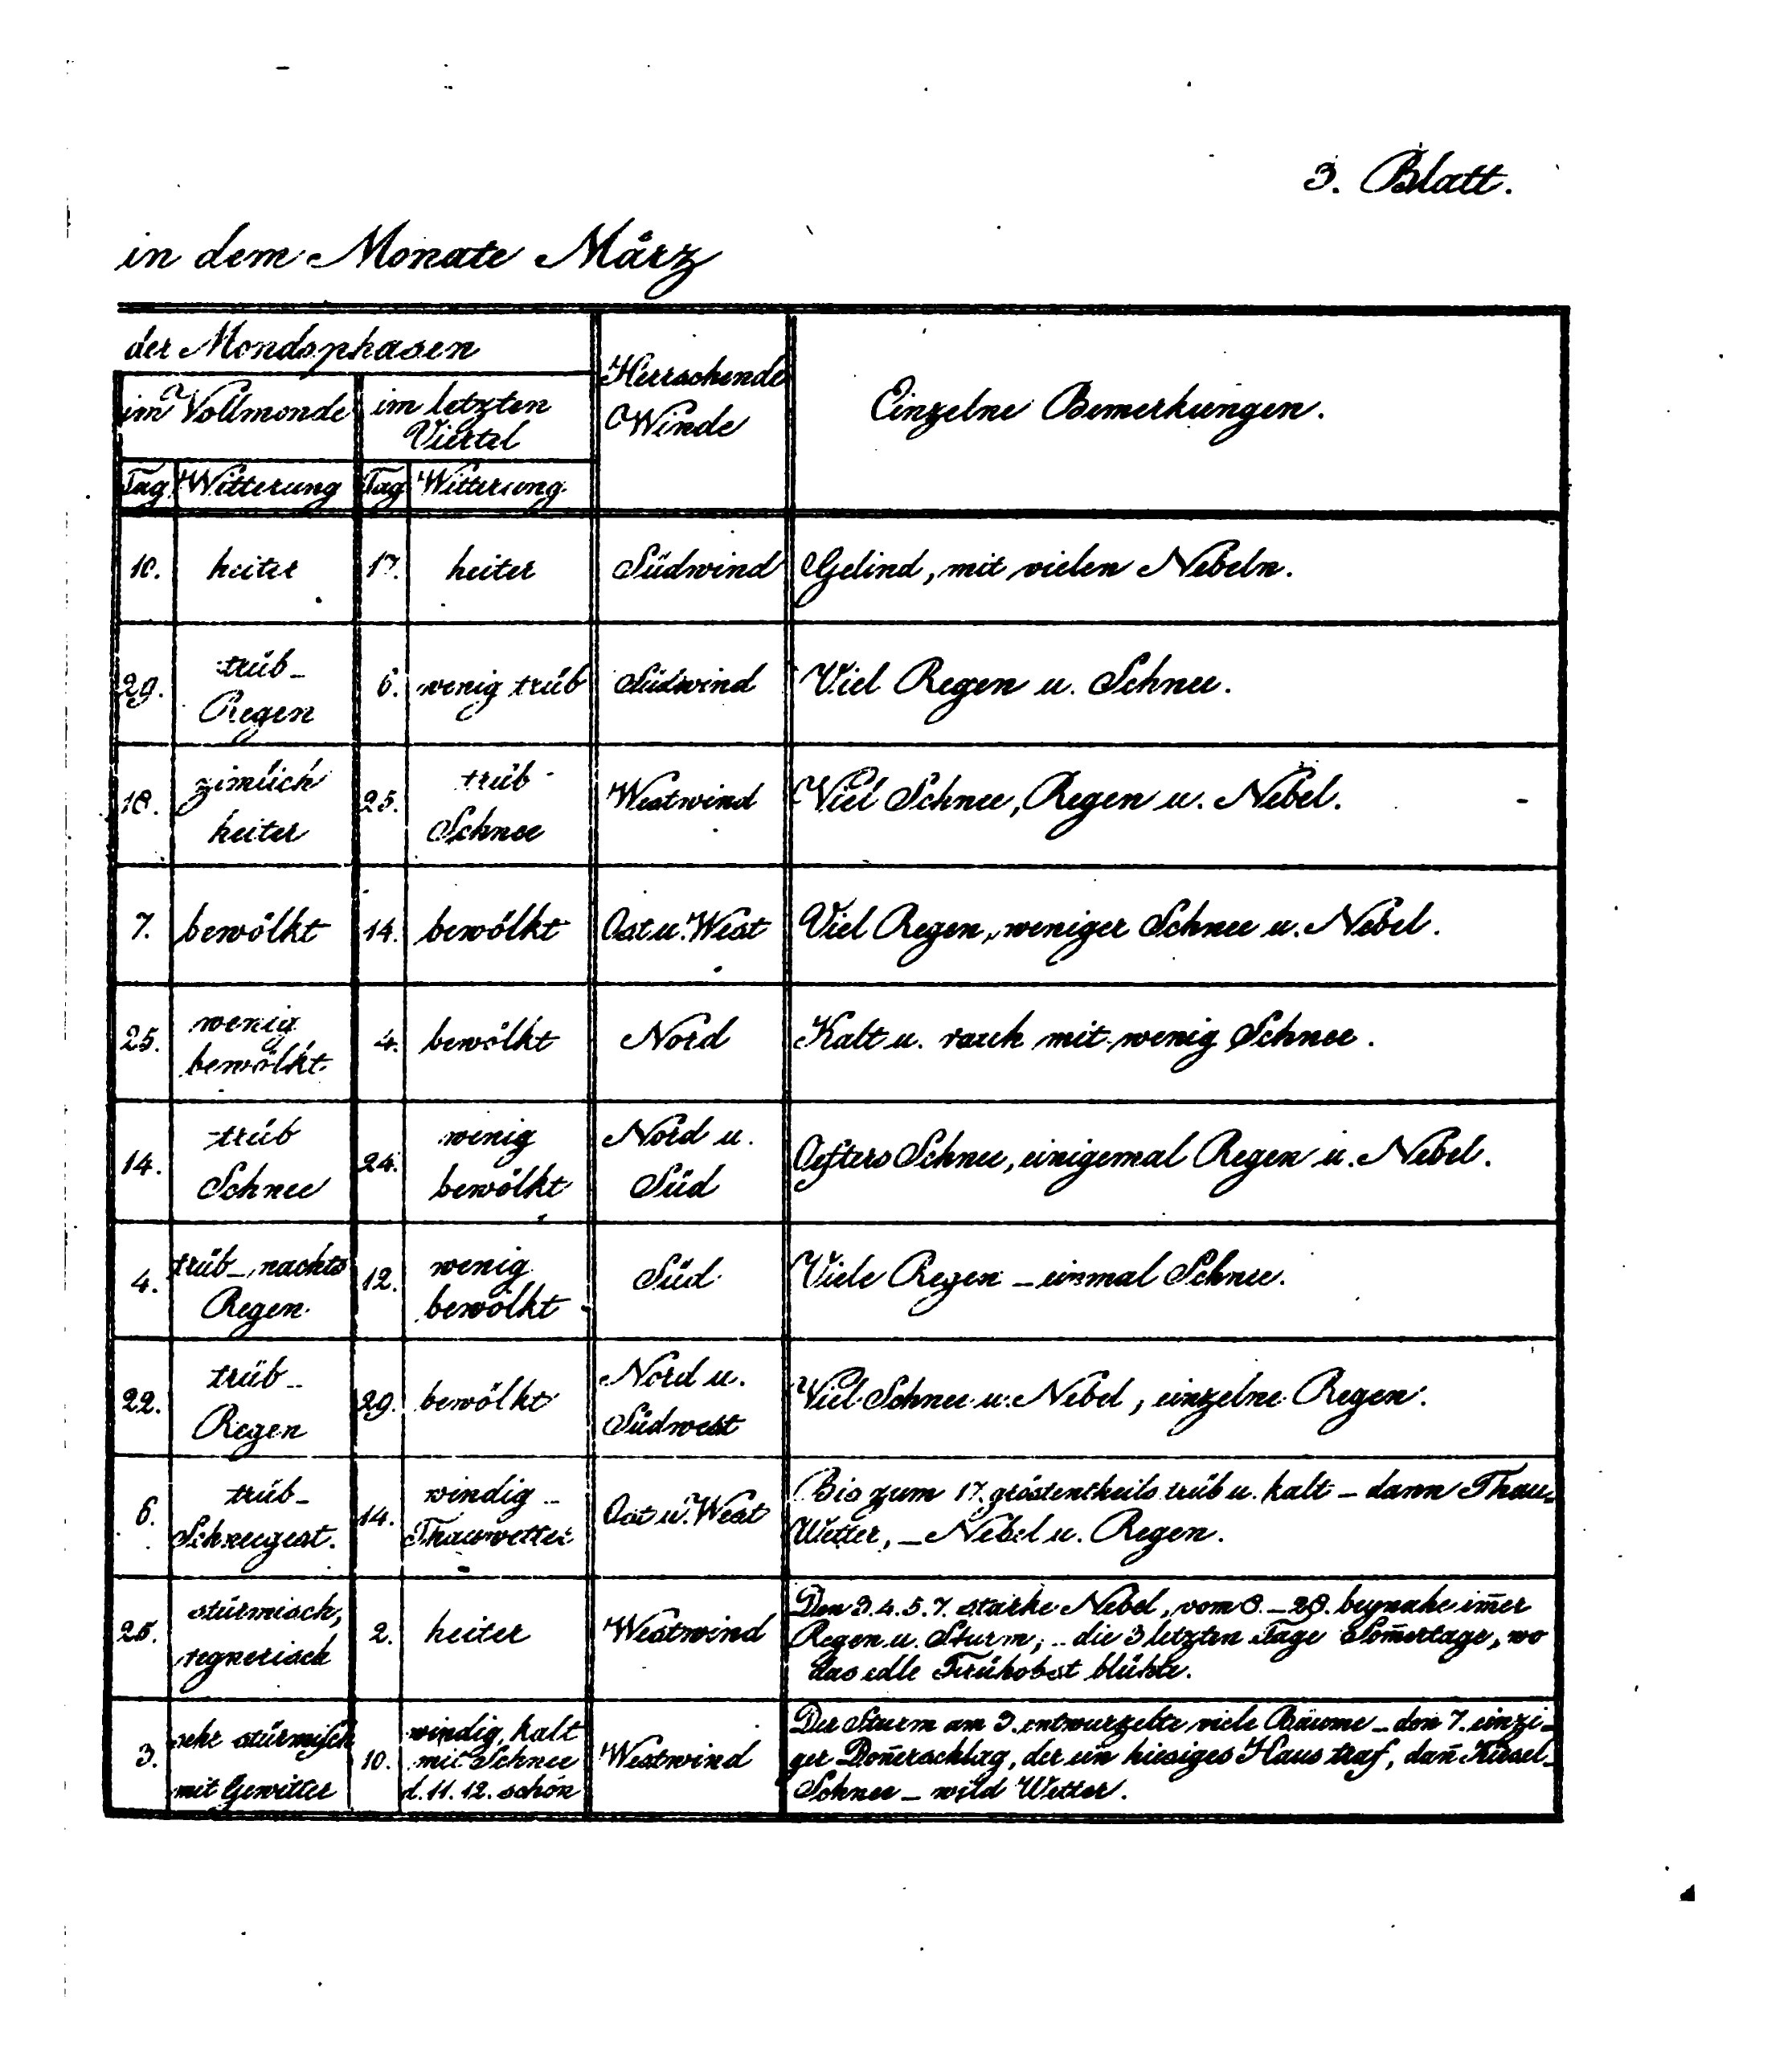 3. Blatt.
in dem Monate März
der Mondsphasen
Herrschende
Winde
Einzelne Bemerkungen.
im Vollmonde
im letzten
Viertel
Tag Witterung Tag Witterung
10. heiter 17. heiter Südwind Gelind, mit vielen Nebeln.
29. trüb_
Regen 6. wenig trüb Südwind Viel Regen u. Schnee.
18. zimlich
heiter 25. trüb
Schnee Westwind Viel Schnee, Regen u. Nebel.
7. bewölkt 14. bewölkt Ost u. West Viel Regen, weniger Schnee u. Nebel.
25. wenig
bewölkt 4. bewölkt Nord Kalt u. rauh mit wenig Schnee.
14. trüb
Schnee 24. wenig
bewölkt Nord u.
Süd Oefters Schnee, einigemal Regen u. Nebel.
4. trüb_nachts
Regen 12. wenig
bewölkt Süd Viele Regen _ einmal Schnee.
22. trüb_
Regen 29. bewölkt Nord u.
Südwest Viel Schnee u. Nebel, einzelne Regen.
6. trüb_
Schneegest. 14. windig_
Thauwetter Ost u. West Bis zum 17. gröstentheils trüb u. kalt _ dann Thau-
Wetter, _ Nebel u. Regen.
25. stürmisch,
regnerisch 2. heiter Westwind Den 3. 4. 5. 7. starke Nebel, vom 8. _ 28. beynahe im̄er
Regen u. Sturm, _ die 3 letzten Tage Som̄ertage, wo
das edle Frühobst blühte.
3. sehr stürmisch
mit Gewitter 10. windig, kalt
mit Schnee
d. 11. 12. schön Westwind Der Sturm am 3. entwurzelte viele Bäume _ den 7. einzi-
ger Don̄erschlag, der ein hiesiges Haus traf, dan̄ Kiesel-
Schnee _ wild Wetter.